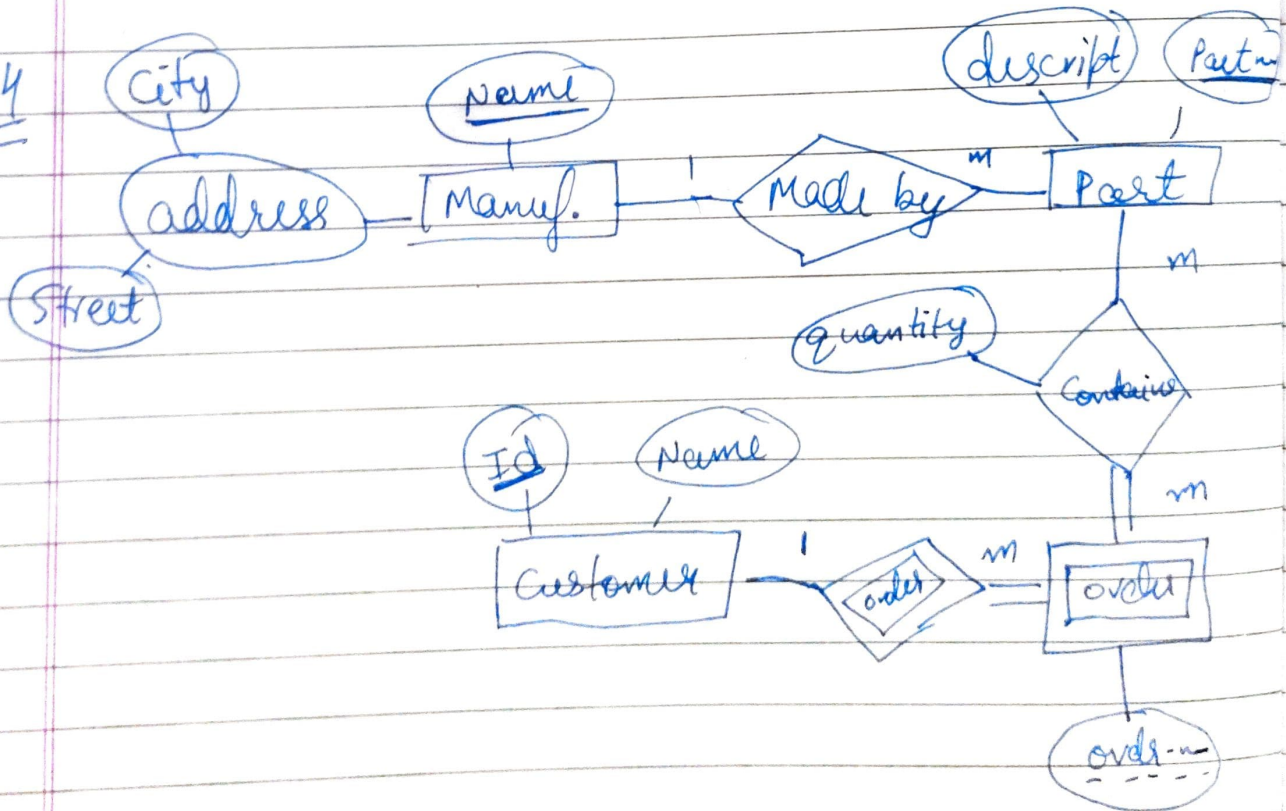 4
City
Name
descript
Part n
address
Manuf.
1
Made by
m
Part
Street
m
quantity
Contains
Id
Name
m
Customer
1
order
m
order
ordr-n